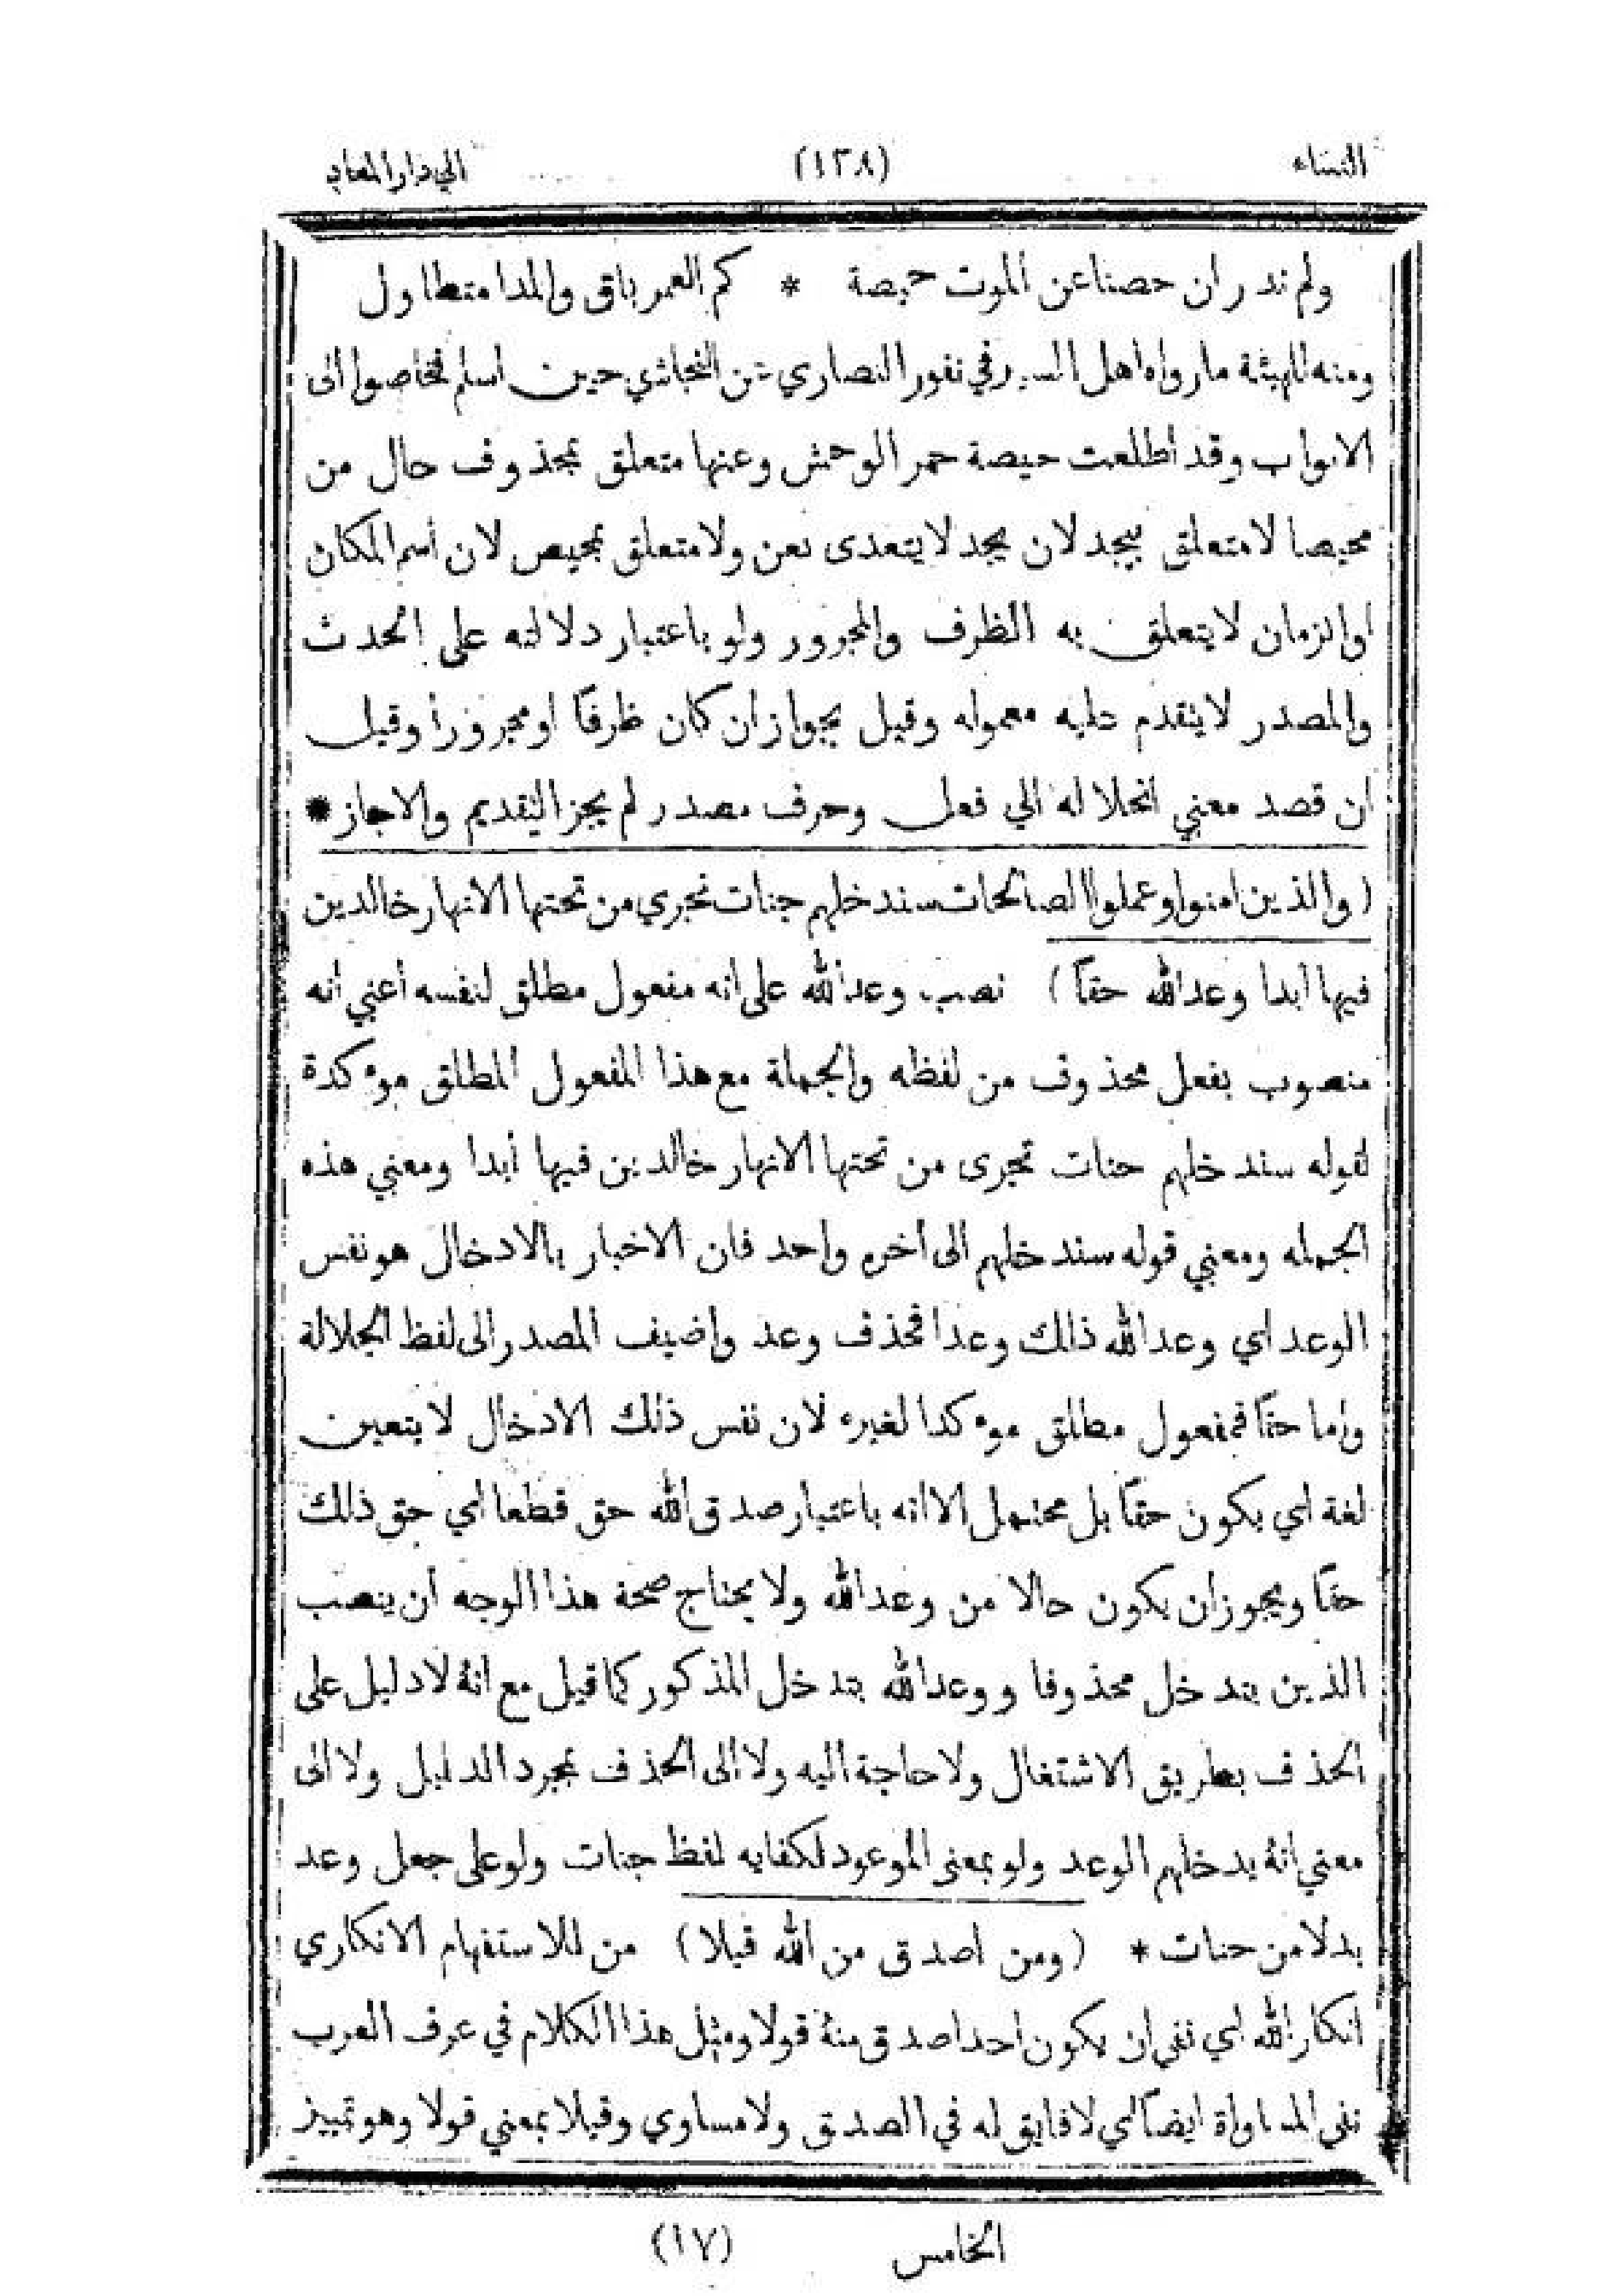 النساء (١٣٨) الي دار المعاد
ولم ندر ان حصنا عن الموت حيصة * كم العمر باق والمدا متطاول
ومنه للهيئة ما رواه اهل السير في نفور النصاري عن النجاشي حين اسلم فحاصوا الى
الابواب وقد اطلعت حيصة حمر الوحش وعنها متعلق بمحذوف حال من
محيصا لا متعلق بيجد لان يجد لا يتعدى بعن ولا متعلق بمحيص لان اسم المكان
او الزمان لا يتعلق به الظرف والمجرور ولو باعتبار دلالته على الحدث
والمصدر لا يتقدم عليه معموله وقيل بجواز ان كان ظرفًا او مجروراً وقيل
ان قصد معني انحلاله الي فعل وحرف مصدر لم يجز التقديم والاجاز *
(والذين امنوا وعملوا الصالحات سندخلهم جنات تجري من تحتها الانهار خالدين
فيها ابدا وعد الله حقًا) نصب وعد الله على انه مفعول مطلق لنفسه أعني أنه
منصوب بفعل محذوف من لفظه والجملة مع هذا المفعول المطلق موءكدة
لقوله سندخلهم جنات تجرى من تحتها الانهار خالدين فيها أبدا ومعني هذه
الجمله ومعني قوله سندخلهم الى أخره واحد فان الاخبار بالادخال هو نفس
الوعد اي وعد الله ذالك وعدا فحذف وعد واضيف المصدر الى لفظ الجلالة
واما حقًا فمفعول مطلق موءكدا لغيره لان نفس ذلك الادخال لا يتعين
لغة اي يكون حقًا بل محتمل الا انه باعتبار صدق الله حق قطعا اي حق ذالك
حقًا ويجوز ان يكون حالا من وعد الله ولا يحتاج صحة هذا الوجه أن ينصب
الذين بتدخل محذوفا ووعد الله بتدخل المذكور كما قيل مع انه لا دليل على
الحذف بطريق الاشتغال ولا حاجة اليه ولا الى الحذف بمجرد الدليل ولا الى
معني انه يدخلهم الوعد ولو بمعنى الموعود لكفايه لفظ جنات ولو على جعل وعد
بدلا من جنات * (ومن اصدق من الله قيلا) من للاستفهام الانكاري
انكار الله اي نفى ان يكون احد اصدق منه قولا ومثل هذا الكلام في عرف العرب
نفي المساواة ايضًا اي لا فايق له في الصدق ولا مساوي وقيلا بمعني قولا وهو تمييز
الخامس (١٧)